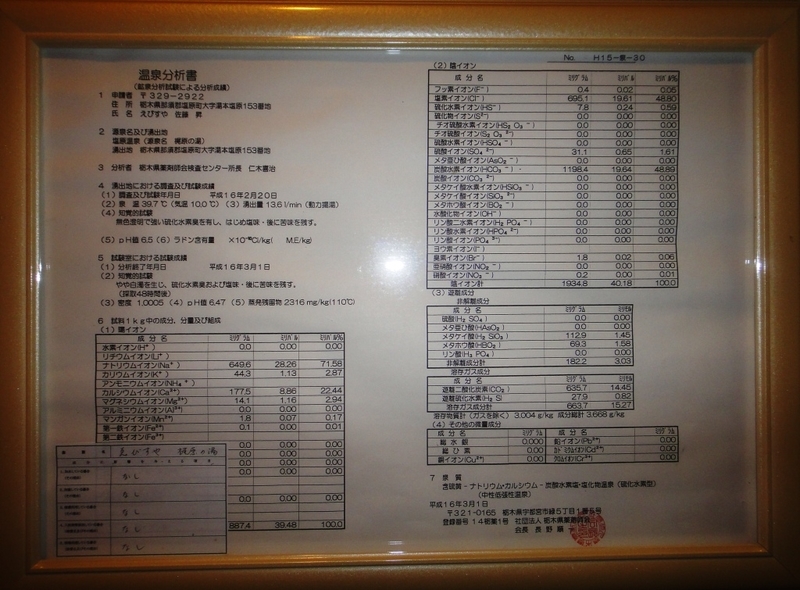 No. H15-衛-30
温泉分析書
(鉱泉分析試験による分析成績)
1 申請者 〒329-2922
住 所 栃木県那須郡塩原町大字湯本塩原153番地
氏 名 えびすや 佐藤 昇
2 源泉名及び湧出地
塩原温泉(源泉名 梶原の湯)
湧出地 栃木県那須郡塩原町大字湯本塩原153番地
3 分析者 栃木県薬剤師会検査センター所長 仁木喜治
4 湧出地における調査及び試験成績
(1)調査及び試験年月日 平成16年2月20日
(2)泉 温 39.7℃(気温 10.0℃) (3)湧出量 13.6 l/min(動力揚湯)
(4)知覚的試験
無色澄明で強い硫化水素臭を有し、はじめ塩味・後に苦味を残す。
(5)pH値 6.5 (6)ラドン含有量 ×10⁻¹⁰Ci/kg( M.E/kg)
5 試験室における試験成績
(1)分析終了年月日 平成16年3月1日
(2)知覚的試験
やや白濁を生じ、硫化水素臭および塩味・後に苦味を残す。
(採取48時間後)
(3)密度 1.0005 (4)pH値 6.47 (5)蒸発残留物 2316 mg/kg(110℃)
6 試料1kg中の成分、分量及び組成
(1)陽イオン
成 分 名 ミリグラム ミリバル ミリバル%
水素イオン(H⁺) 0.0 0.00 0.00
リチウムイオン(Li⁺)
ナトリウムイオン(Na⁺) 649.6 28.26 71.58
カリウムイオン(K⁺) 44.3 1.13 2.87
アンモニウムイオン(NH₄⁺)
カルシウムイオン(Ca²⁺) 177.5 8.86 22.44
マグネシウムイオン(Mg²⁺) 14.1 1.16 2.94
アルミニウムイオン(Al³⁺) 0.0 0.00 0.00
マンガンイオン(Mn²⁺) 1.8 0.07 0.17
第一鉄イオン(Fe²⁺) 0.1 0.00 0.01
第二鉄イオン(Fe³⁺)
0.0 0.00 0.00
0.00 0.00
0.0 0.00 0.00
887.4 39.48 100.0
えびすや 梶原の湯
なし
なし
なし
なし
(2)陰イオン
成 分 名 ミリグラム ミリバル ミリバル%
フッ素イオン(F⁻) 0.4 0.02 0.05
塩素イオン(Cl⁻) 695.1 19.61 48.80
硫化水素イオン(HS⁻) 7.8 0.24 0.59
硫化物イオン(S²⁻) 0.0 0.00 0.00
チオ硫酸水素イオン(HS₂O₃⁻) 0.0 0.00 0.00
チオ硫酸イオン(S₂O₃²⁻) 0.0 0.00 0.00
硫酸水素イオン(HSO₄⁻) 0.0 0.00 0.00
硫酸イオン(SO₄²⁻) 31.1 0.65 1.61
メタ亜ひ酸イオン(AsO₂⁻) 0.0 0.00 0.00
炭酸水素イオン(HCO₃⁻) 1198.4 19.64 48.89
炭酸イオン(CO₃²⁻) 0.0 0.00 0.00
メタケイ酸水素イオン(HSiO₃⁻) 0.0 0.00 0.00
メタケイ酸イオン(SiO₃²⁻) 0.0 0.00 0.00
メタホウ酸イオン(BO₂⁻) 0.0 0.00 0.00
水酸化物イオン(OH⁻) 0.0 0.00 0.00
リン酸二水素イオン(H₂PO₄⁻) 0.0 0.00 0.00
リン酸水素イオン(HPO₄²⁻) 0.0 0.00 0.00
リン酸イオン(PO₄³⁻) 0.0 0.00 0.00
ヨウ素イオン(I⁻)
臭素イオン(Br⁻) 1.8 0.02 0.06
亜硝酸イオン(NO₂⁻) 0.0 0.00 0.00
硝酸イオン(NO₃⁻) 0.2 0.00 0.01
陰イオン計 1934.8 40.18 100.0
(3)遊離成分
非解離成分
成 分 名 ミリグラム ミリモル
硫酸(H₂SO₄) 0.0 0.00
メタ亜ひ酸(HAsO₂) 0.0 0.00
メタケイ酸(H₂SiO₃) 112.9 1.45
メタホウ酸(HBO₂) 69.3 1.58
リン酸(H₃PO₄) 0.0 0.00
非解離成分計 182.2 3.03
溶存ガス成分
成 分 名 ミリグラム ミリモル
遊離二酸化炭素(CO₂) 635.7 14.45
遊離硫化水素(H₂S) 27.9 0.82
溶存ガス成分計 663.7 15.27
溶存物質計(ガスを除く) 3.004 g/kg 成分総計 3.668 g/kg
(4)その他の微量成分
成 分 名 ミリグラム 成 分 名 ミリグラム
総 水 銀 0.000 鉛イオン(Pb²⁺) 0.00
総 ひ 素 0.00 カドミウムイオン(Cd²⁺) 0.00
銅イオン(Cu²⁺) 0.00 クロムイオン(Cr³⁺) 0.00
7 泉 質
含硫黄-ナトリウム・カルシウム-炭酸水素塩・塩化物温泉(硫化水素型)
(中性低張性温泉)
平成16年3月1日
〒321-0165 栃木県宇都宮市緑5丁目1番5号
登録番号 14衛環第1号 社団法人 栃木県薬剤師会
会長 長野 順一